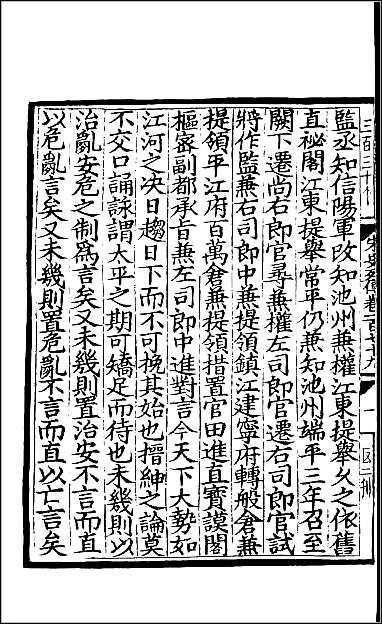 監丞知信陽軍改知池州兼權江東提舉久之依舊
直祕閣江東提舉常平仍兼知池州端平三年召至
闕下遷尚右郎官尋兼權左司郎官遷右司郎官試
將作監兼右司郎中兼提領鎮江建寧府轉般倉兼
提領平江府百萬倉兼提領措置官田進直寶謨閣
樞密副都承旨兼左司郎中進對言今天下大勢如
江河之决日趨日下而不可挽其始也搢紳之論莫
不交口誦詠謂太平之期可矯足而待也未幾則以
治亂安危之制爲言矣又未幾則置治安不言而直
以危亂言矣又未幾則置危亂不言而直以亡言矣